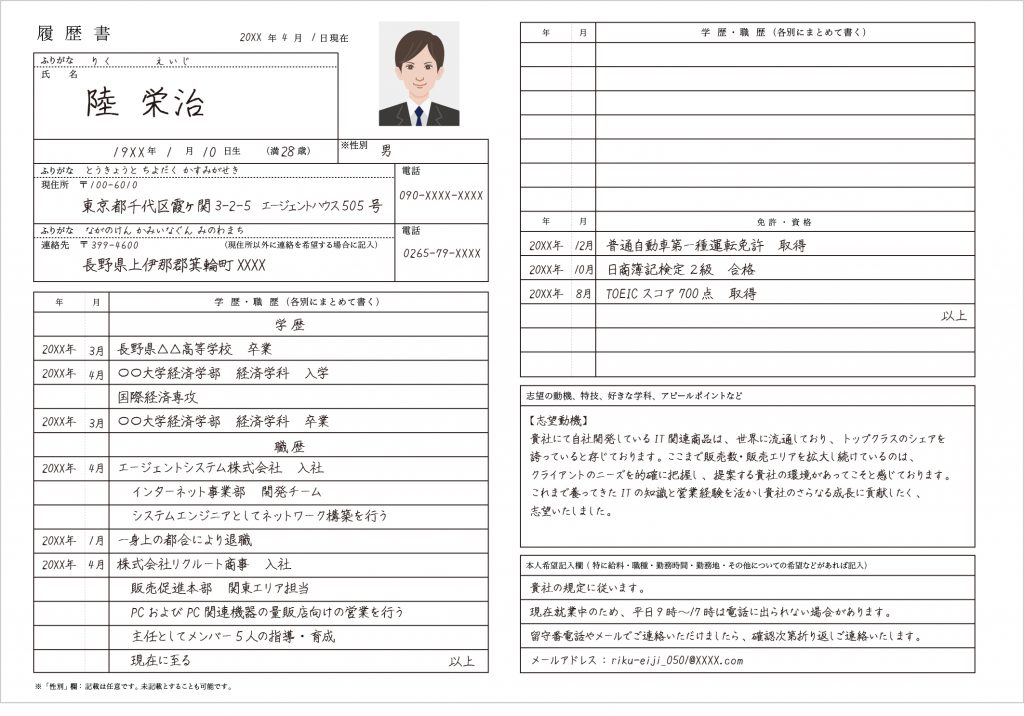 履歴書
20XX 年 4 月 1 日現在
ふりがな りく えいじ
氏 名
陸 栄治
19XX 年 1 月 10 日生 (満 28 歳)
※性別 男
ふりがな とうきょうと ちよだく かすみがせき
現住所 〒100-6010
東京都千代田区霞ヶ関 3-2-5 エージェントハウス 505 号
電話
090-XXXX-XXXX
ふりがな ながのけん かみいなぐん みのわまち
連絡先 〒399-4600 (現住所以外に連絡を希望する場合に記入)
長野県上伊那郡箕輪町 XXXX
電話
0265-79-XXXX
年 月 学 歴・職 歴 (各別にまとめて書く)
学 歴
20XX年 3月 長野県△△高等学校 卒業
20XX年 4月 ○○大学経済学部 経済学科 入学
国際経済専攻
20XX年 3月 ○○大学経済学部 経済学科 卒業
職 歴
20XX年 4月 エージェントシステム株式会社 入社
インターネット事業部 開発チーム
システムエンジニアとしてネットワーク構築を行う
20XX年 1月 一身上の都合により退職
20XX年 4月 株式会社リクルート商事 入社
販売促進本部 関東エリア担当
PC および PC 関連機器の量販店向けの営業を行う
主任としてメンバー 5 人の指導・育成
現在に至る 以上
※「性別」欄：記載は任意です。未記載とすることも可能です。
年 月 学 歴・職 歴 (各別にまとめて書く)
年 月 免 許・資 格
20XX年 12月 普通自動車第一種運転免許 取得
20XX年 10月 日商簿記検定 2 級 合格
20XX年 8月 TOEIC スコア 700 点 取得
以上
志望の動機、特技、好きな学科、アピールポイントなど
【志望動機】
貴社にて自社開発している IT 関連商品は、世界に流通しており、トップクラスのシェアを
誇っていると存じております。ここまで販売数・販売エリアを拡大し続けているのは、
クライアントのニーズを的確に把握し、提案する貴社の環境があってこそと感じております。
これまで養ってきた IT の知識と営業経験を活かし貴社のさらなる成長に貢献したく、
志望いたしました。
本人希望記入欄 ( 特に給料・職種・勤務時間・勤務地・その他についての希望などがあれば記入)
貴社の規定に従います。
現在就業中のため、平日 9 時〜17 時は電話に出られない場合があります。
留守番電話やメールでご連絡いただけましたら、確認次第折り返しご連絡いたします。
メールアドレス：riku-eiji_0501@XXXX.com